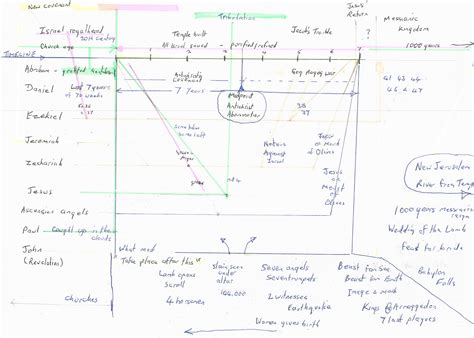 New Covenant
Israel regathered 20th century
Temple built
Tribulation
Jacob's Trouble
Jesus' Return
Messianic Kingdom
Church age
All Israel saved - purified/refined
1000 years
TIMELINE
1 2 3 4 5 6 7
Abraham -
Antichrist's Covenant
Gog magog war
Daniel
Last 7 years of 70 weeks
7 Years
Midpoint
Antichrist
Abomination
41 43 44
46 & 47
Ezekiel
36
37
38
39
Jeremiah
Zechariah
Nations Against Israel
Feet on Mount of Olives
Jesus
Mt 4
Jesus on Mount of Olives
New Jerusalem
River from Temple
Ascension angels
1000 years messianic reign
Paul
Caught up in the clouds
Wedding of the Lamb
Feast for birds
John (Revelation)
What must Take place after this
Lamb opens scroll
4 horsemen
slain seen under altar
144,000
Seven angels
Seven trumpets
2 witnesses
Earthquake
Beast from Sea
Beast from Earth
Image & mark
Kings @ Armageddon
7 last plagues
Babylon Falls
Churches
Woman gives birth